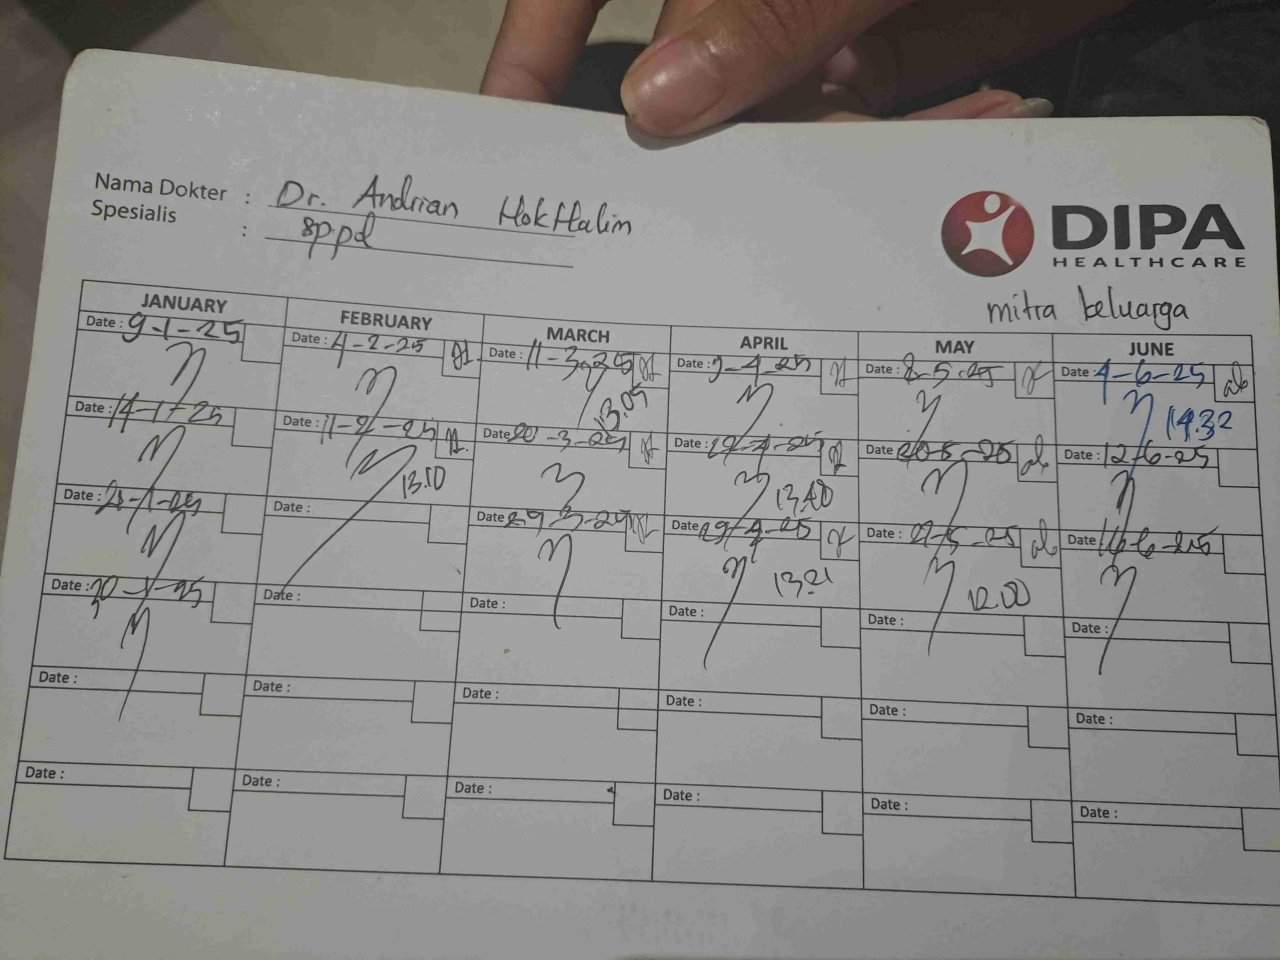 Nama Dokter : Dr. Andrian HokHalim
Spesialis : sp.pd
DIPA
HEALTHCARE
mitra keluarga
JANUARY FEBRUARY MARCH APRIL MAY JUNE
Date : 9-1-25 Date : 4-2-25 Date : 11-3-25 Date : 9-4-25 Date : 8-5-25 Date : 4-6-25
13.05 14.32
Date : 14-1-25 Date : 11-2-25 Date : 20-3-25 Date : Date : 20-5-25 Date : 12-6-25
13.10 13.40
Date : Date : Date : 29-3-25 Date : 29-4-25 Date : 27-5-25 Date : 16-6-25
13.21 12.00
Date : Date : Date : Date : Date : Date :
Date : Date : Date : Date : Date : Date :
Date : Date : Date : Date : Date : Date :